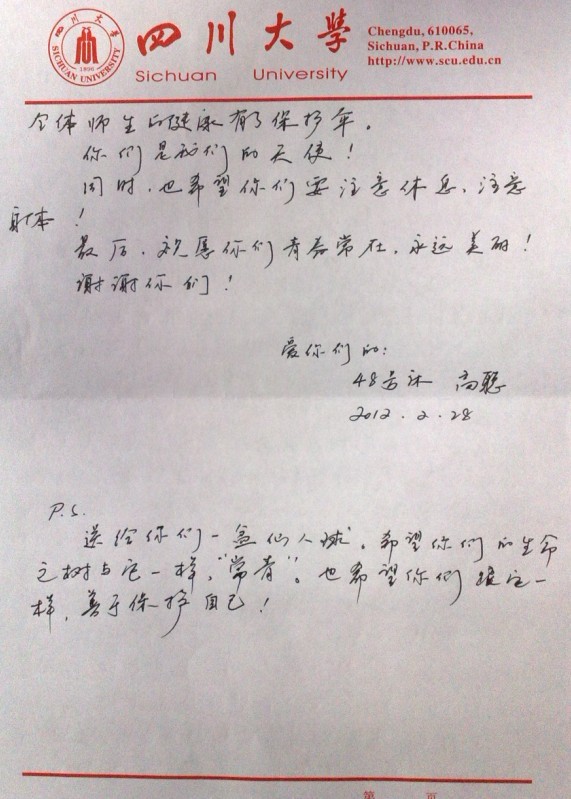 四川大学
1896
SICHUAN UNIVERSITY
四川大學
Sichuan University
Chengdu, 610065,
Sichuan, P.R.China
http://www.scu.edu.cn
全体师生的健康有了保护伞。
你们是我们的天使!
同时,也希望你们要注意休息,注意
身体!
最后,祝愿你们青春常在,永远美丽!
谢谢你们!
爱你们的:
48号床 高聪
2012.2.28
P.S.
送给你们一盆仙人球,希望你们的生命
之树与它一样,“常青”。也希望你们跟它一
样,善于保护自己!
第 页